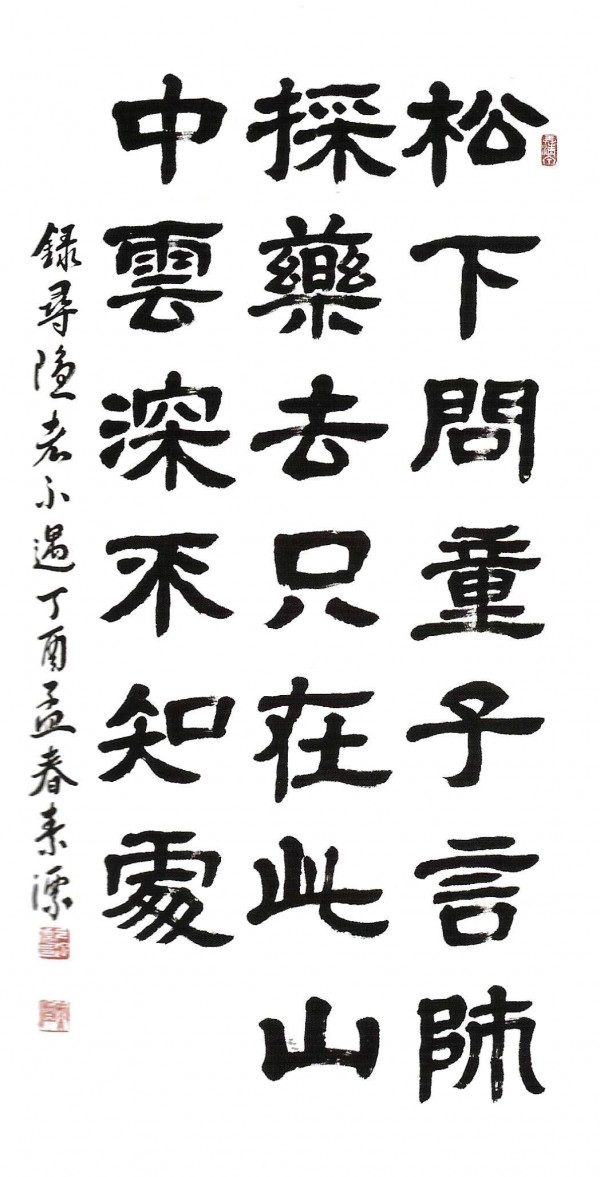 松下問童子言師
採藥去只在此山
中雲深不知處
録尋隱者不遇丁酉孟春素潔